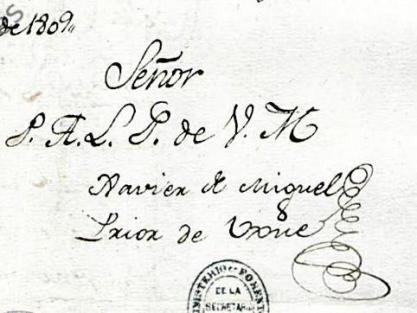 de 1809,,
Señor
P. A. L. P. de V. M
Xavier de Miguel
Prior de Uxue
MINISTERIO FOMENTO
DE LA
SECRETARIA